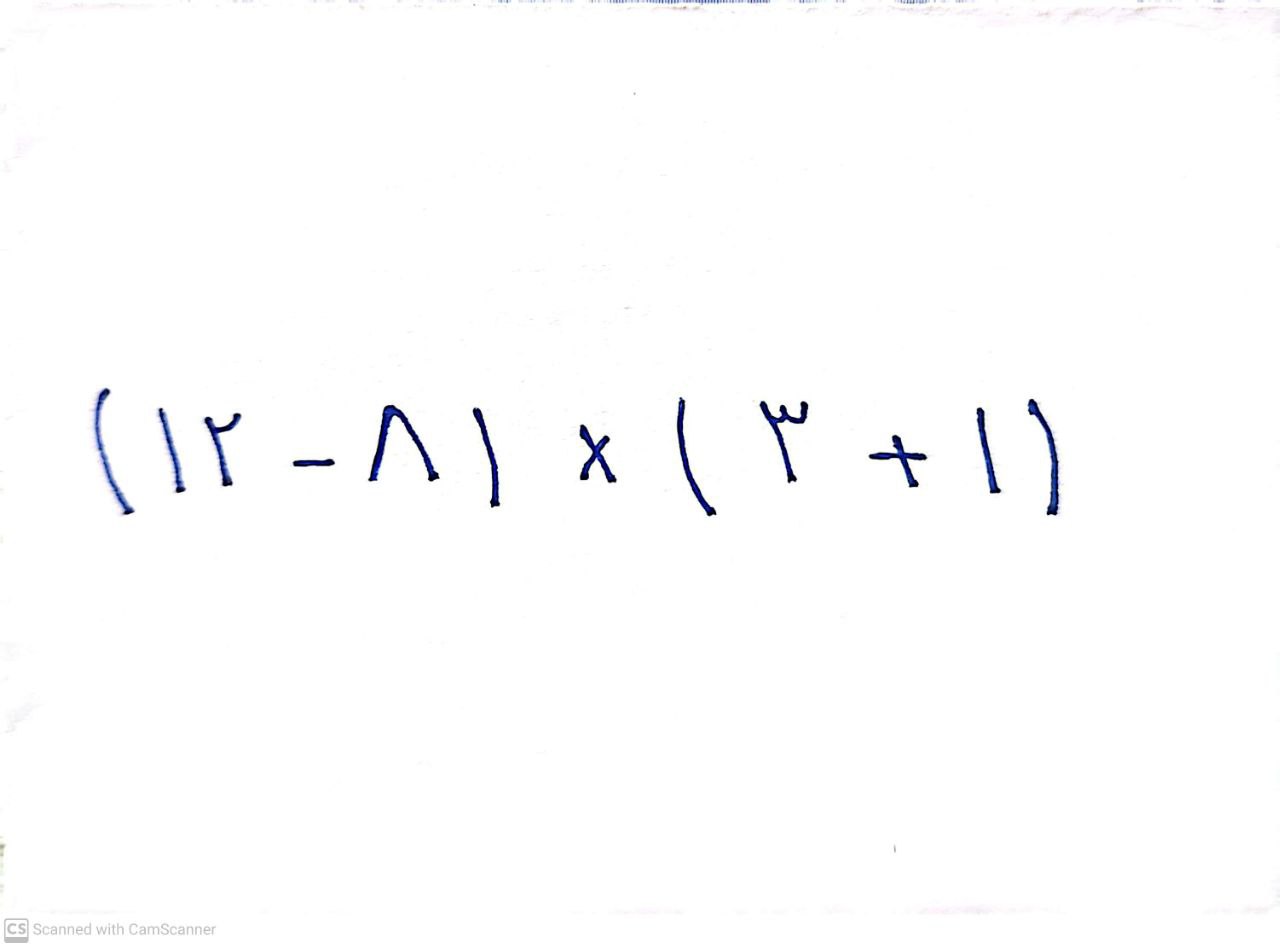 (۱۲ - ۸) × (۳ + ۱)
CS Scanned with CamScanner